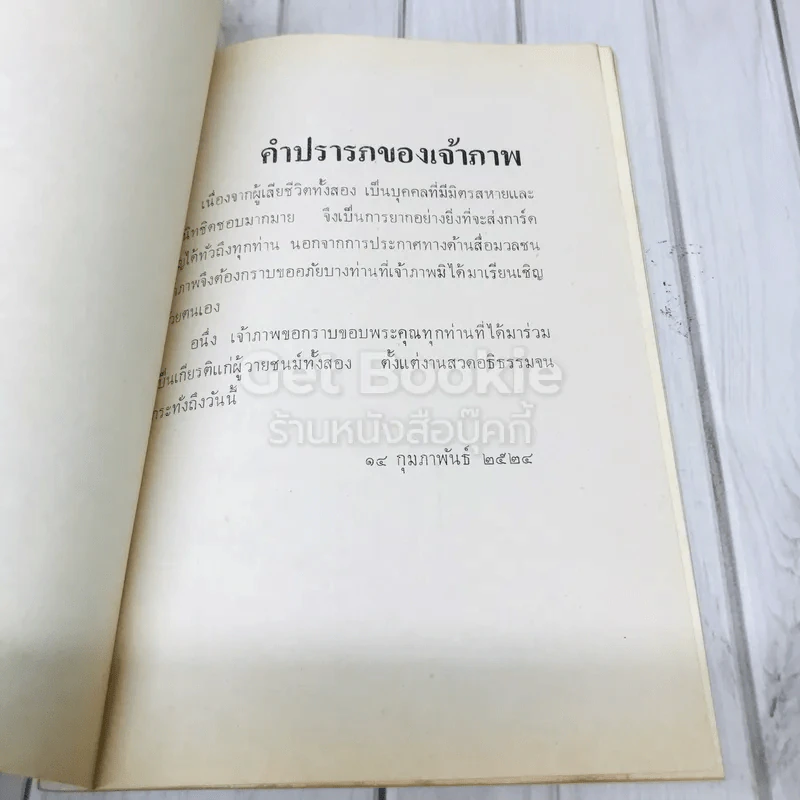 คำปรารภของเจ้าภาพ
เนื่องจากผู้เสียชีวิตทั้งสอง เป็นบุคคลที่มีมิตรสหายและ
ชิดชอบมากมาย จึงเป็นการยากอย่างยิ่งที่จะส่งการ์ด
ได้ทั่วถึงทุกท่าน นอกจากการประกาศทางด้านสื่อมวลชน
ภาพจึงต้องกราบขออภัยบางท่านที่เจ้าภาพมิได้มาเรียนเชิญ
ยตนเอง
อนึ่ง เจ้าภาพขอกราบขอบพระคุณทุกท่านที่ได้มาร่วม
เป็นเกียรติแก่ผู้วายชนม์ทั้งสอง ตั้งแต่งานสวดอธิธรรมจน
กระทั่งถึงวันนี้
Get Bookie
ร้านหนังสือบุ๊คกี้
๑๔ กุมภาพันธ์ ๒๕๒๔